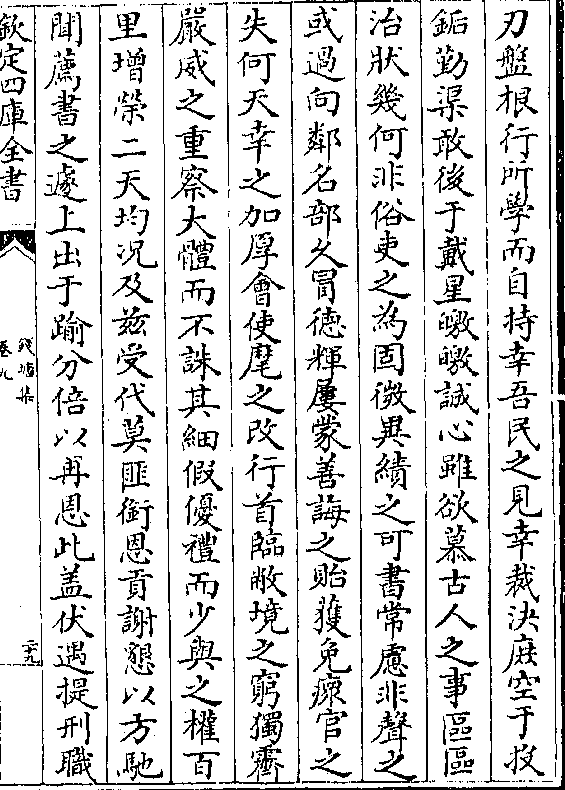 刃盤根行所學而自持幸吾民之見幸裁決庶空于投
鉐勤渠敢後于戴星皦皦誠心雖欲慕古人之事區區
治狀幾何非俗吏之為固微異績之可書常慮非聲之
或過向鄰名部久冒徳輝屢蒙善誨之貽獲免瘝官之
失何天幸之加厚㑹使麾之改行首臨敝境之窮獨霽
嚴威之重察大體而不誅其細假優禮而少與之權百
里增榮二天均況及兹受代莫匪銜恩貢謝懇以方馳
聞薦書之遽上出于踰分倍以再恩此盖伏遇提刑職
欽定四庫全書
錢塘集
卷九
二十九